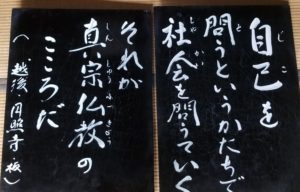 自己を
問うというかたちで
社会を問うていく
それが
真宗仏教の
こころだ
(越後 円照寺 板)